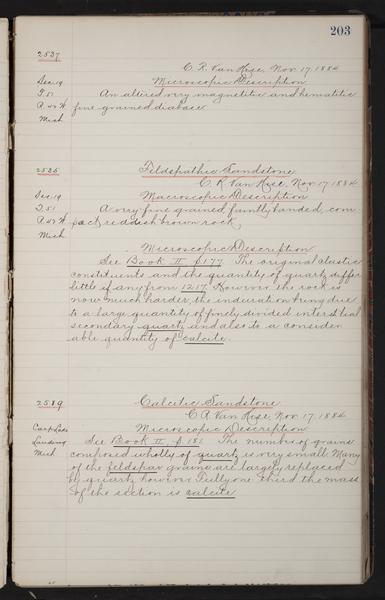 203
2537
C. R. Van Hise, Nov. 17, 1884
Sec. 19 Microscopic Description
T. 51 An altered very magnetitic and hematitic
R. 42 W fine grained diabase
Mich
2535 Feldspathic Sandstone
C. R. Van Hise, Nov 17 1884
Sec. 19 Macroscopic Description
T. 51 A very fine grained, faintly banded, com-
R. 42 W pact reddish brown rock
Mich
Microscopic Description
See Book II p. 177. The original clastic
constituents and the quantity of quartz differ
little if any from 1217. However the rock is
now much harder, the induration being due
to a large quantity of finely divided interstitial
secondary quartz and also to a consider
able quantity of calcite.
2589 Calcitic Sandstone
C. R. Van Hise, Nov. 17, 1884
Carp Lake Microscopic Description
Landing See Book II, p. 181 The number of grains
Mich composed wholly of quartz is very small. Many
of the feldspar grains are largely replaced
by quartz however. Fully one third the mass
of the section is calcite